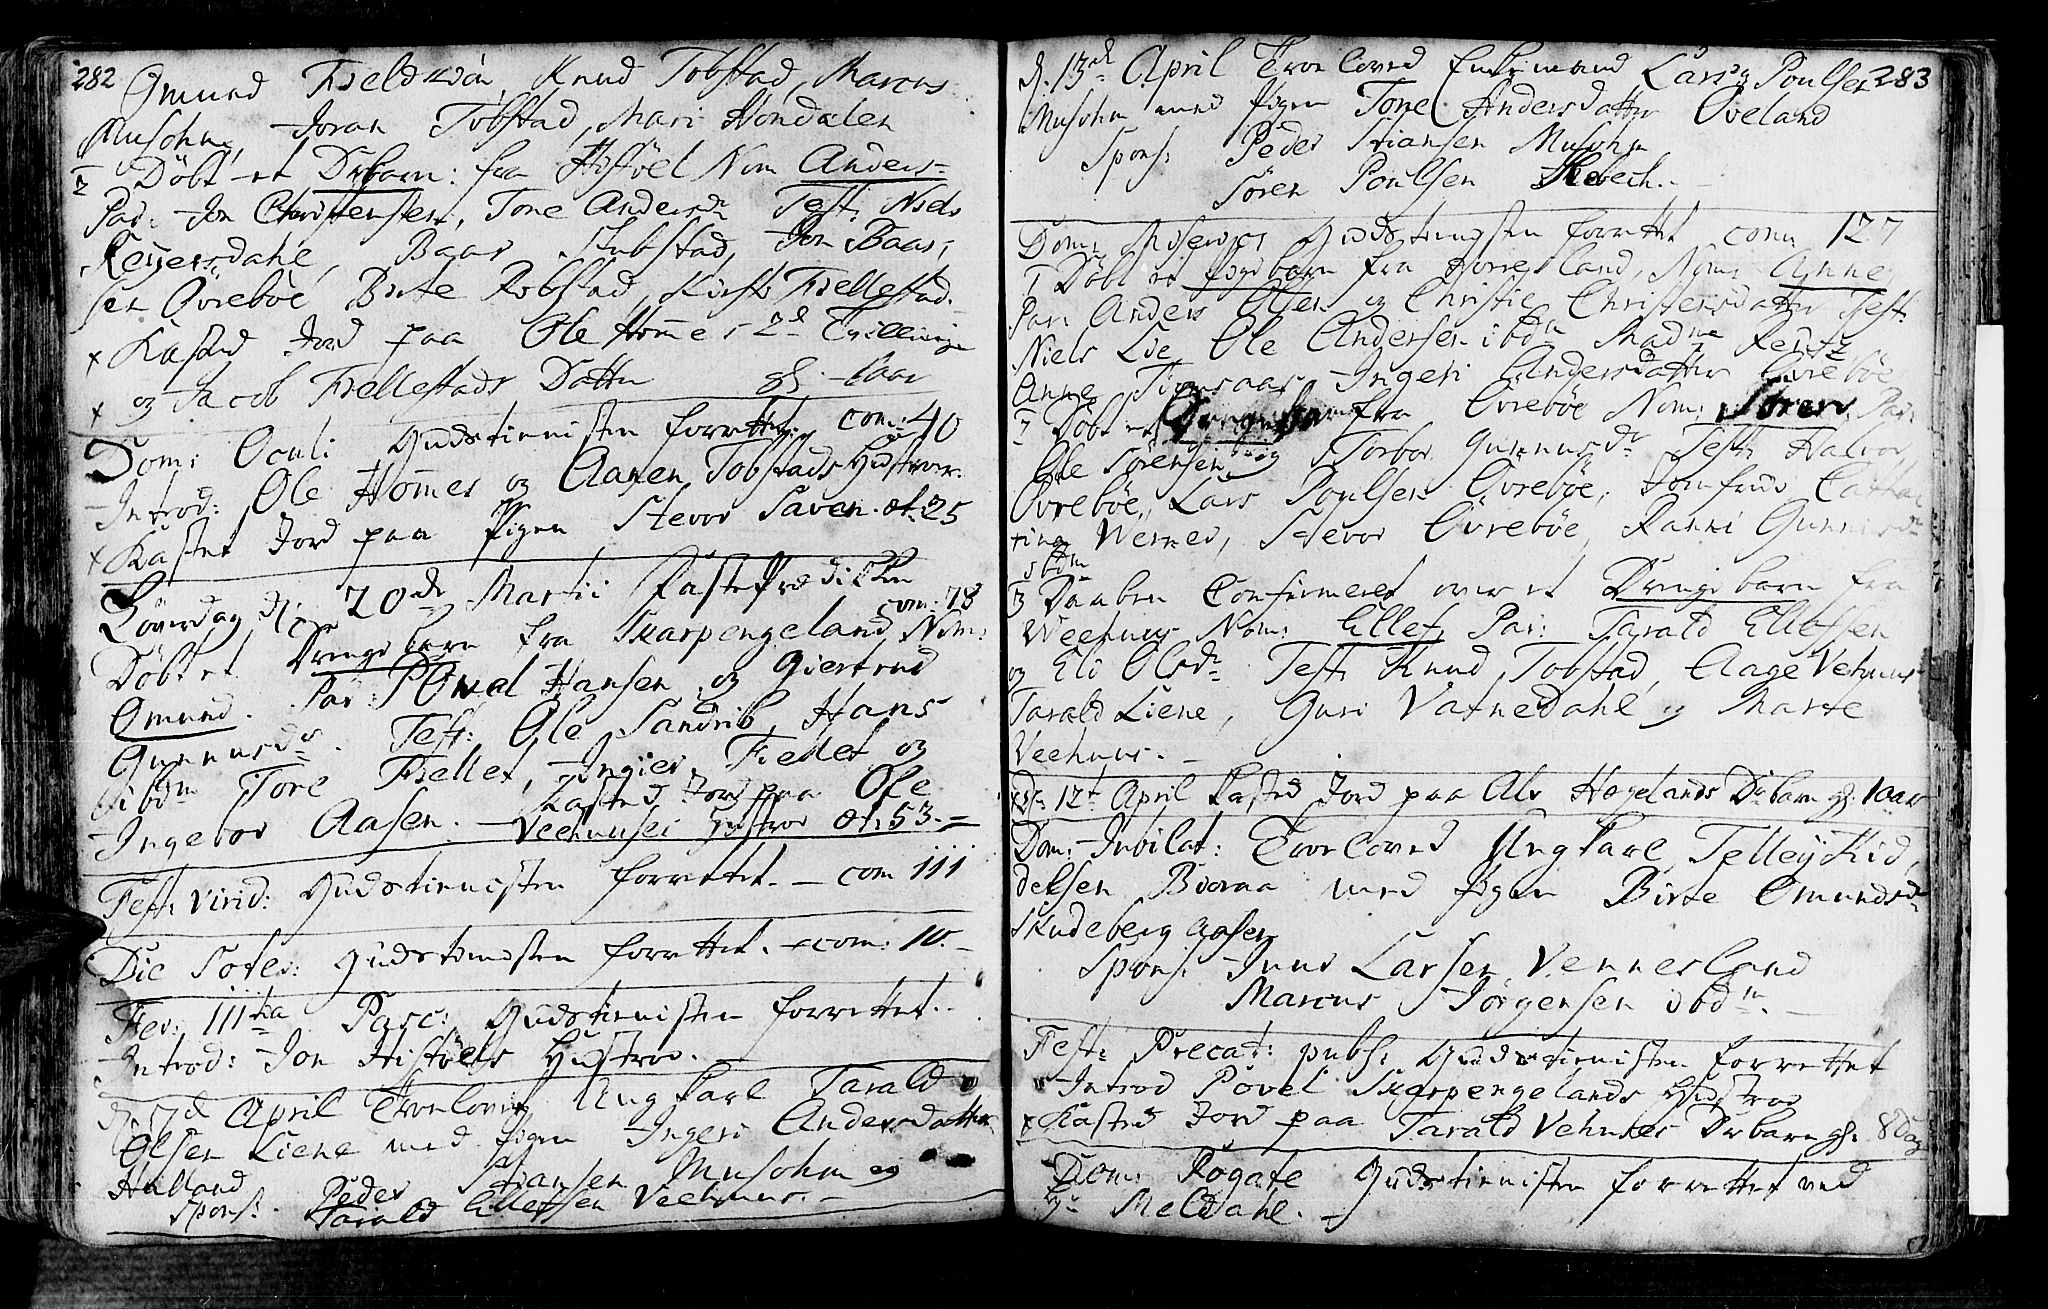 282
Omund Knud Tobstad, Marcus
Musohm, Joran Tobstad, Mari Hondalen
2 Döbt et Drbarn: fra Histöel Nom Anders
Par: Jon Christensen, Tone Andersdr Test: Niels
Reijersdahl, Baar Stubstad, Jon Baar
sen Övreböe, Birte Robstad, Kirsti Fiellestad.
x Kasted Jord paa Ole Homes 2de Tvillinger
x og Jacob Fiellestads Datter gl. aar
Dom: Oculi Gudstienisten forrettet, com: 40
Introd: Ole Homes og Aanen Tobstads Hustroer.
x Kastet Jord paa Pigen Stevor Paven. æt. 25
Löverdag d: 20de Martii Faste Prædiken com: 78
Döbt et Drengebarn fra Skarpengeland, Nom:
Omund. Par: Povel Hansen og Giertrud
Gunnusdr. Test: Ole Sandrib, Hans
ibdm Tore Fiellet, Inger Fiellet og
Ingebor Aasen. Kasted Jord paa Ole
Veehuusei Hustroe æt: 53.
Fest: Virid: Gudstienisten forrettet. com 111
Die Soter: Gudstienisten forrettet. com: 10.
Fer: IIItia Pasc: Gudstienisten forrettet.
Introd: Jon Histöels Hustroe.
d: 17d April Troelovet Ung Karl Tarald
Olsen Liene med Pigen Ingeri Andersdatter
Halland
Spons: Peder Stiansen Musohm og
Tarald Ellefsen Veehuus.
283
d. 13de April Troeloved Enkemand Lars Poulsen
Musohm med Pigen Tone Andersdatter Öveland
Spons: Peder Stiansen Musohm
Sören Poulsen
Dom: Miseric: Gudstienisten forrettet com 127
1 Döbt et Pigebarn fra Horrisland, Nom: Anne
Par: Anders Olsen og Christie Christensdatter Test:
Niels Lie Ole Andersen ibdm Madme Rentz
Anne Ingeri Andersdatter Övreböe
2 Döbt et Drengebarn fra Övreböe Nom: Sören. Par:
Ole Sörensen og Torbor Gunnusdr Test: Halvor
Övreböe, Lars Poulsen Övreböe, Jomfrue Catha
rina Werner, Stevor Övreböe, Ranni Gunnisdr
ibdm
3 Daaben Confirmeret over et Drengebarn fra
Weehuus Nom: Ellef, Par: Tarald Ellefsen
og Eli Olsdr Test: Knud Tobstad, Aage Vehuus
Tarald Liene, Guri Vatnedahl og Marte
Veehuus.
d: 12t April Kasted Jord paa Alv Hægelands Drbarn gl: 10 aar
Dom: Jubilat: Troeloved Ung Karl, Tellej Kid
delsen med Pigen Birte Omundsdr
Skudeberg Aasen
Spons: Larsen Vennesland
Marcus Jörgensen ibdm.
Fest: Precat: publ: Gudstienisten forrettet
Introd Povel Skarpengelands Hustroe
x Kasted Jord paa Tarald Vehuuses Drbarn gl: 8 Dag
Dom: Rogate Gudstienisten forrettet ved
Hr Meldahl.